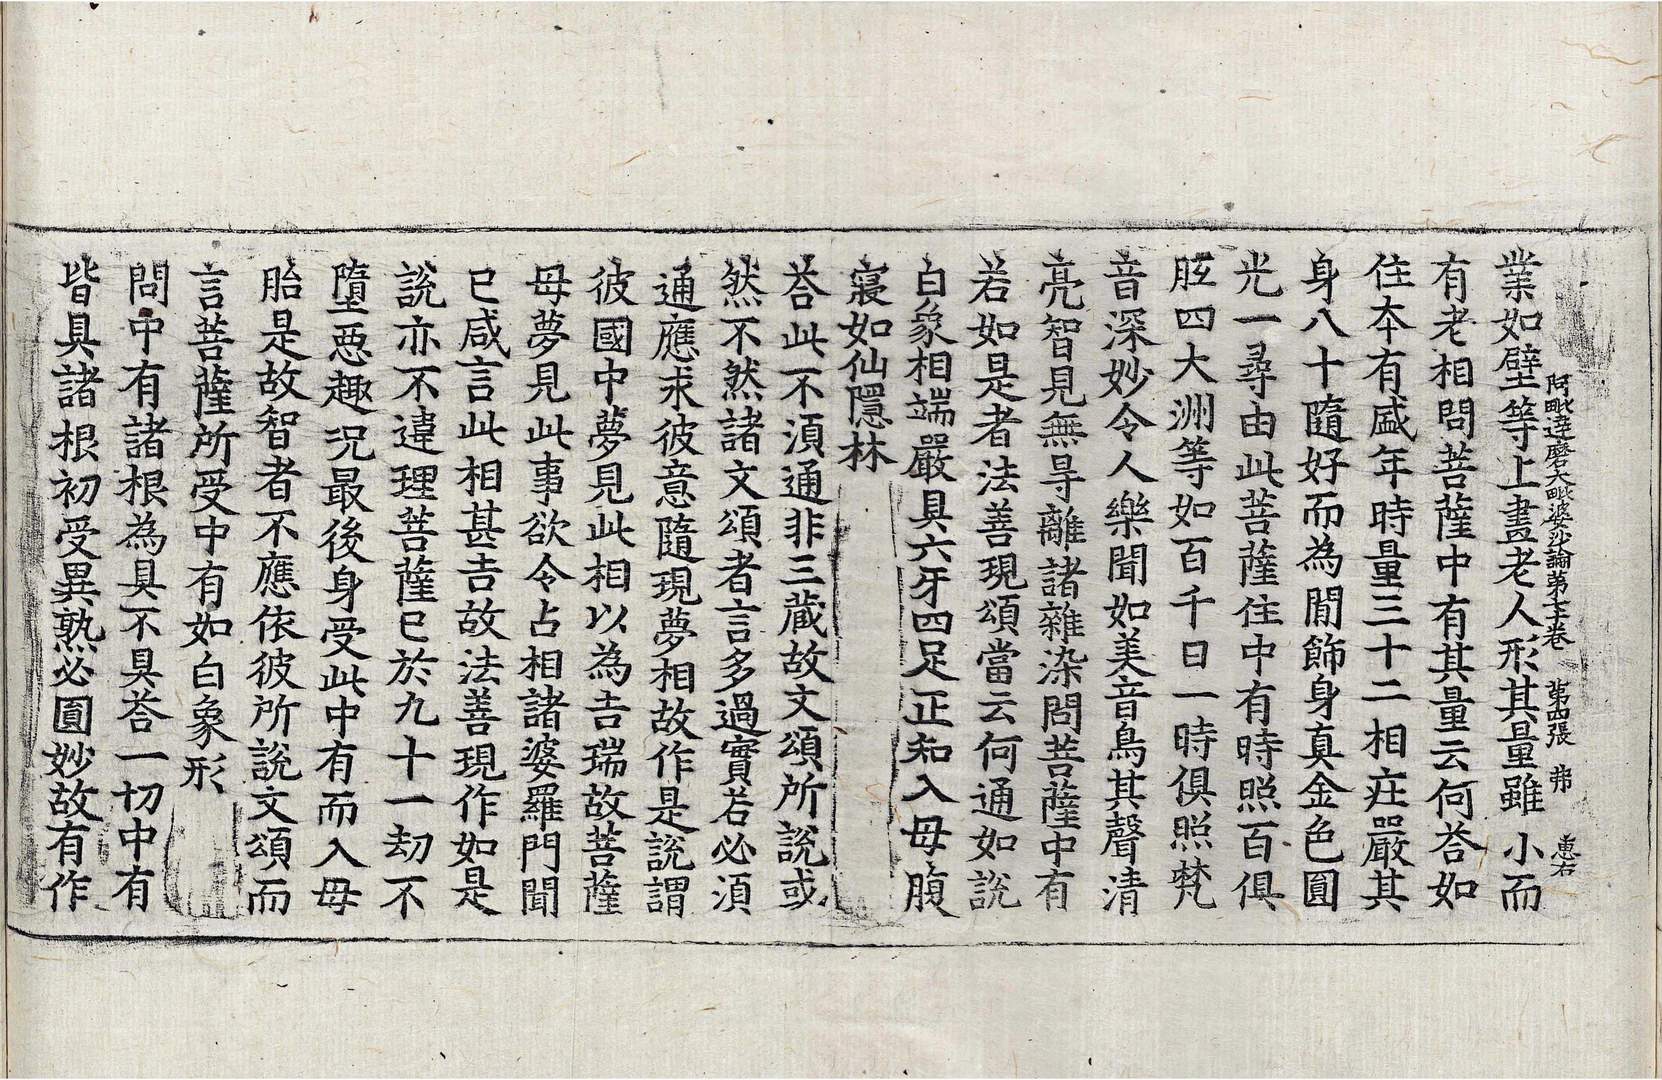 阿毗達磨大毗婆沙論第七十卷 第四張 弗 惠右
業如壁等上畫老人形其量雖小而
有老相問菩薩中有其量云何荅如
住本有盛年時量三十二相莊嚴其
身八十隨好而為閒飾身真金色圓
光一尋由此菩薩住中有時照百俱
胝四大洲等如百千日一時俱照梵
音深妙令人樂聞如美音鳥其聲清
亮智見無㝵離諸雜染問菩薩中有
若如是者法善現頌當云何通如說
白象相端嚴具六牙四足正知入母腹
寢如仙隱林
荅此不須通非三藏故文頌所說或
然不然諸文頌者言多過實若必須
通應求彼意隨現夢相故作是說謂
彼國中夢見此相以為吉瑞故菩薩
母夢見此事欲令占相諸婆羅門聞
已咸言此相甚吉故法善現作如是
說亦不違理菩薩已於九十一劫不
墮惡趣況最後身受此中有而入母
胎是故智者不應依彼所說文頌而
言菩薩所受中有如白象形
問中有諸根為具不具荅一切中有
皆具諸根初受異熟必圓妙故有作